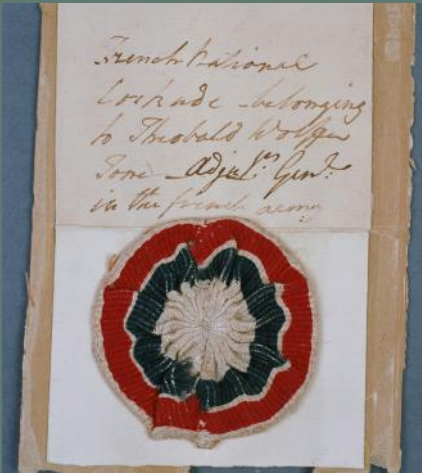 French National
Cockade - belonging
to Theobald Wolfe
Tone - Adju.ts Gen.l
in the french army